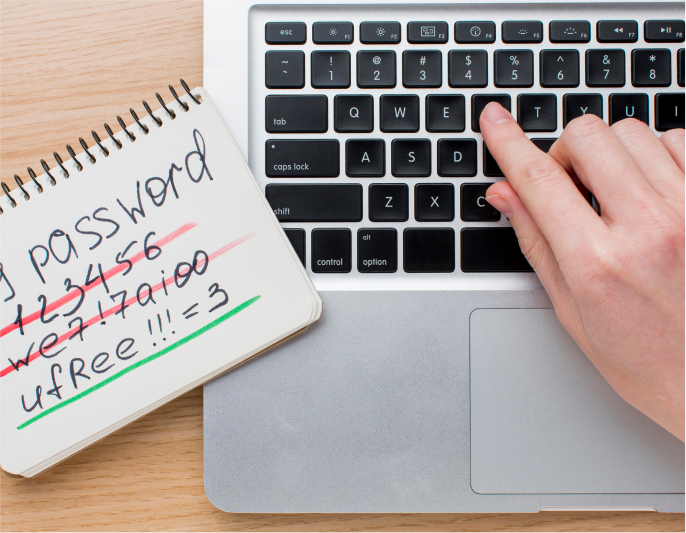 y password
123456
we7!7aioo
ufRee!!!=3
esc F1 F2 F3 F4 F5 F6 F7 F8
~ ! @ # $ % ^ & *
` 1 2 3 4 5 6 7 8
tab Q W E T Y U I
caps lock A S D
shift Z X C
alt
control option